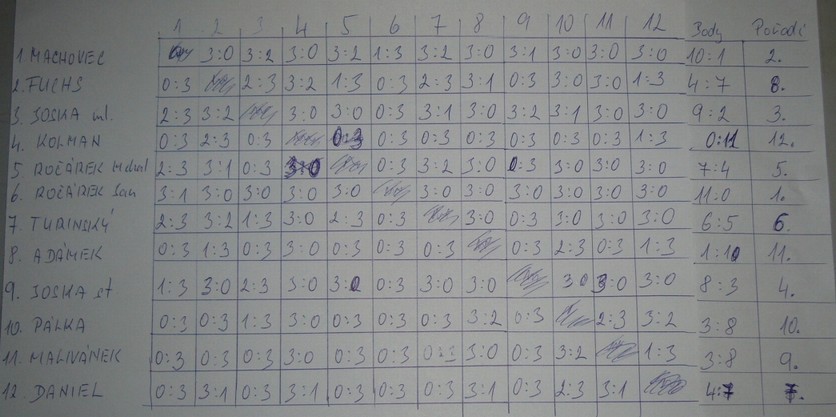 1 2 3 4 5 6 7 8 9 10 11 12 Body Pořadí
1. MACHOVEC 3:0 3:2 3:0 3:2 1:3 3:2 3:0 3:1 3:0 3:0 3:0 10:1 2.
2. FUCHS 0:3 2:3 3:2 1:3 0:3 2:3 3:1 0:3 3:0 3:0 1:3 4:7 8.
3. JOSKA ml. 2:3 3:2 3:0 3:0 0:3 3:1 3:0 3:2 3:1 3:0 3:0 9:2 3.
4. KOLMAN 0:3 2:3 0:3 0:3 0:3 0:3 0:3 0:3 0:3 0:3 1:3 0:11 12.
5. ROČÁREK Michal 2:3 3:1 0:3 3:0 0:3 3:2 3:0 0:3 3:0 3:0 3:0 7:4 5.
6. ROČÁREK Jan 3:1 3:0 3:0 3:0 3:0 3:0 3:0 3:0 3:0 3:0 3:0 11:0 1.
7. TURINSKÝ 2:3 3:2 1:3 3:0 2:3 0:3 3:0 0:3 3:0 3:0 3:0 6:5 6.
8. ADÁMEK 0:3 1:3 0:3 3:0 0:3 0:3 0:3 0:3 2:3 0:3 1:3 1:10 11.
9. JOSKA st 1:3 3:0 2:3 3:0 3:0 0:3 3:0 3:0 3:0 3:0 3:0 8:3 4.
10. PÁLKA 0:3 0:3 1:3 3:0 0:3 0:3 0:3 3:2 0:3 2:3 3:2 3:8 10.
11. MALIVÁNEK 0:3 0:3 0:3 3:0 0:3 0:3 0:3 3:0 0:3 3:2 1:3 3:8 9.
12. DANIEL 0:3 3:1 0:3 3:1 0:3 0:3 0:3 3:1 0:3 2:3 3:1 4:7 7.